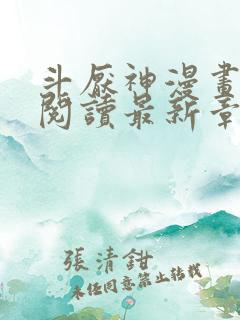 斗厭神漫畫
閱讀最新章
張清鉗
未經同意禁止轉載